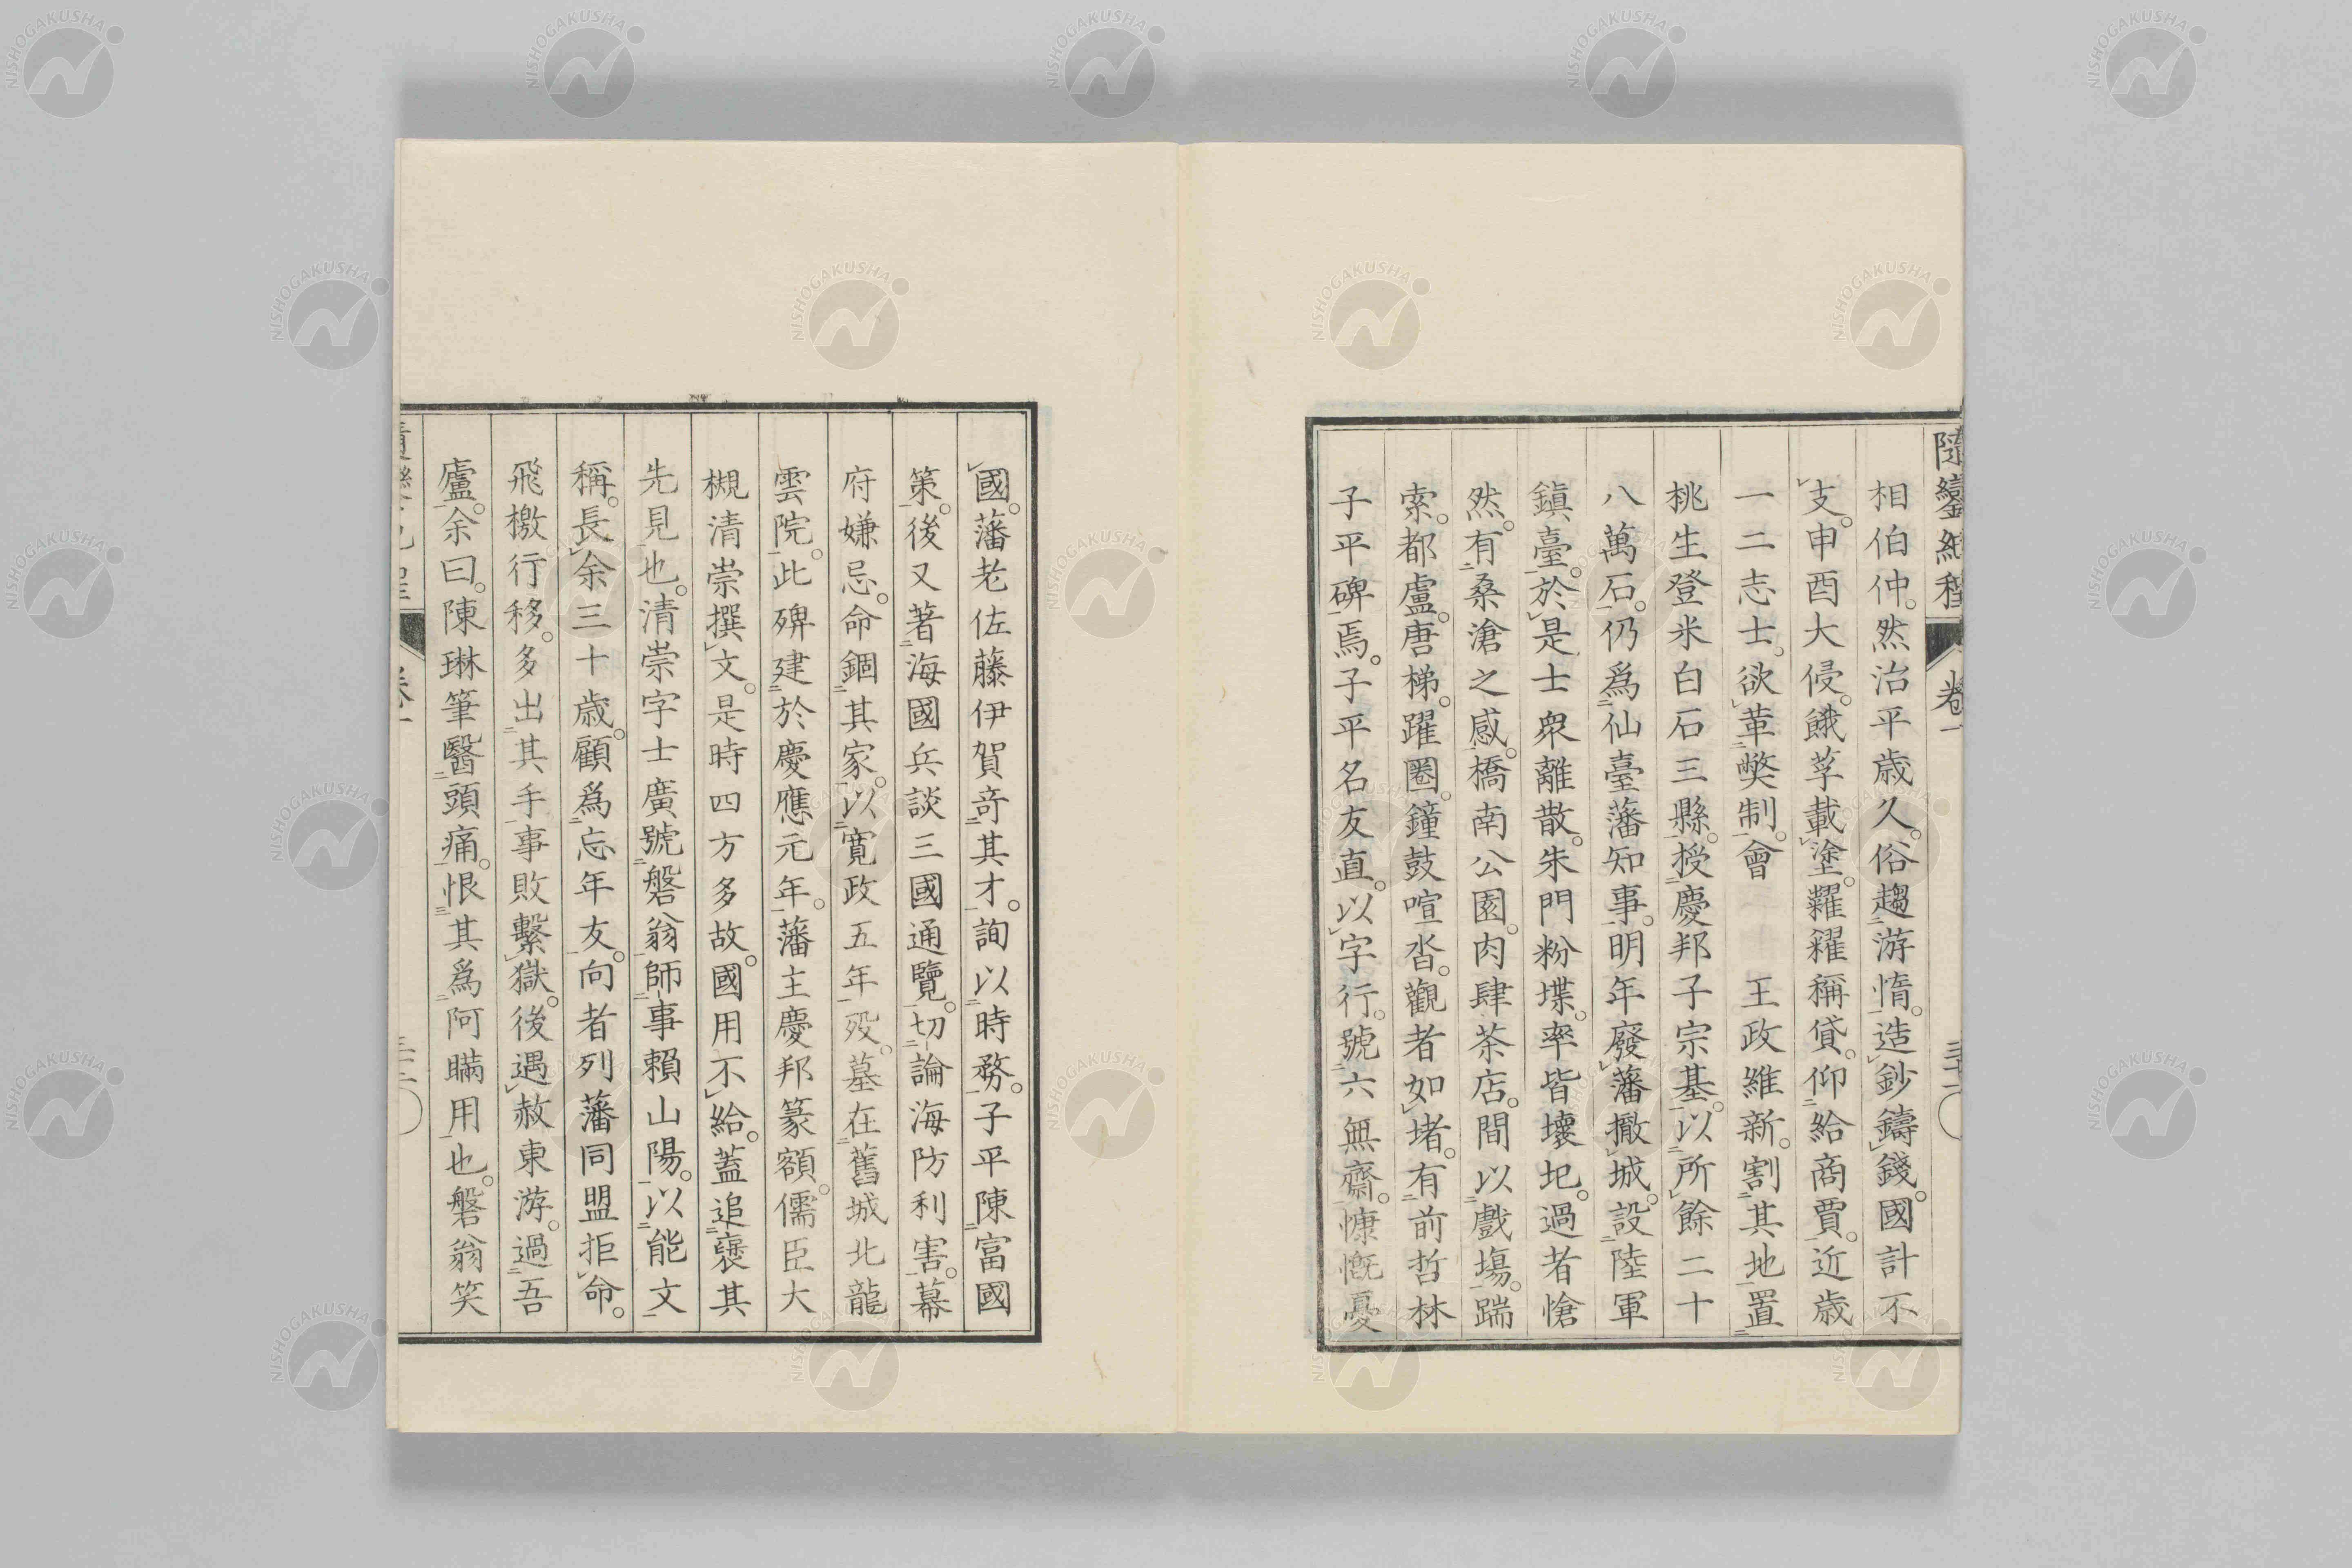 隨鑾紀程 卷一
相伯仲。然治平歳久。俗趨游惰。造鈔鑄錢。國計不
支。申酉大侵。餓莩載塗。糶糴稱貸。仰給商賈。近歳
一二志士。欲革獘制。會 王政維新。割其地置
桃生登米白石三縣。授慶邦子宗基。以所餘二十
八萬石。仍爲仙臺藩知事。明年廢藩撤城。設陸軍
鎮臺。於是士衆離散。朱門粉堞。率皆壞圮。過者愴
然。有桑滄之感。橋南公園。肉肆茶店。間以戲塲。踹
索。都盧。唐梯。躍圈。鐘鼓喧沓。觀者如堵。有前哲林
子平碑焉。子平名友直。以字行。號六無齋。慷慨憂
國。藩老佐藤伊賀竒其才。詢以時務。子平陳富國
策。後又著海國兵談三國通覽。切論海防利害。幕
府嫌忌。命錮其家。以寬政五年歿。墓在舊城北龍
雲院。此碑建於慶應元年。藩主慶邦篆額。儒臣大
槻清崇撰文。是時四方多故。國用不給。蓋追褒其
先見也。清崇字士廣號磐翁。師事賴山陽。以能文
稱。長余三十歳。顧爲忘年友。向者列藩同盟拒命。
飛檄行移。多出其手。事敗繫獄。後遇赦東游。過吾
廬。余曰。陳琳筆醫頭痛。恨其爲阿瞞用也。磐翁笑